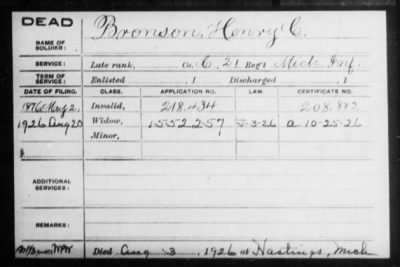 DEAD
NAME OF SOLDIER: Bronson, Henry C.
SERVICE: Late rank, Co. C, 21 Reg't Mich Inf.
TERM OF SERVICE: Enlisted , 1 Discharged , 1
DATE OF FILING. CLASS. APPLICATION NO. LAW. CERTIFICATE NO.
1876 Aug 2. Invalid, 218.434 208.882
1926 Aug 20 Widow, 1552257 5-3-26 a 10-25-26
Minor,
$
ADDITIONAL SERVICES:
REMARKS:
Died Aug 3, 1926 at Hastings, Mich